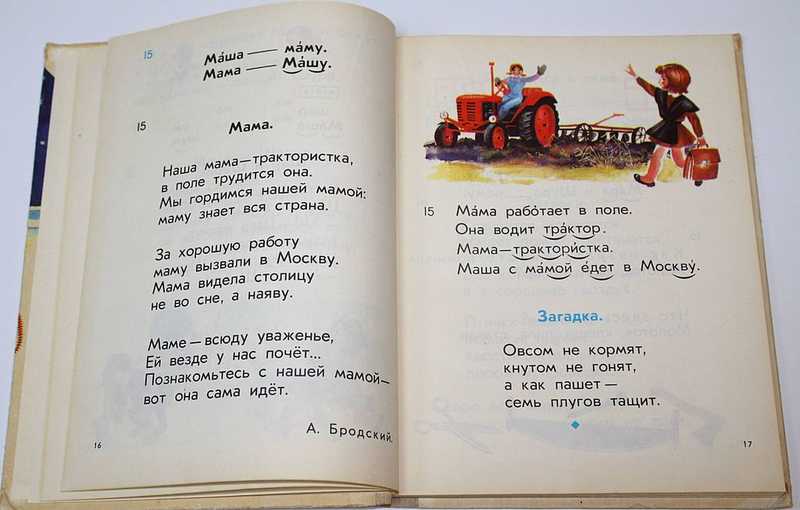 15
Ма́ша — ма́му.
Мама — Ма́шу.
15
Мама.
Наша мама—трактористка,
в поле трудится она.
Мы гордимся нашей мамой:
маму знает вся страна.
За хорошую работу
маму вызвали в Москву.
Мама видела столицу
не во сне, а наяву.
Маме — всюду уваженье,
Ей везде у нас почёт...
Познакомьтесь с нашей мамой—
вот она сама идёт.
А. Бродский.
16
15
Ма́ма рабо́тает в поле.
Она водит тра́ктор.
Мама—трактори́стка.
Маша с ма́мой е́дет в Москву́.
Загадка.
Овсом не кормят,
кнутом не гонят,
а как пашет —
семь плугов тащит.
17